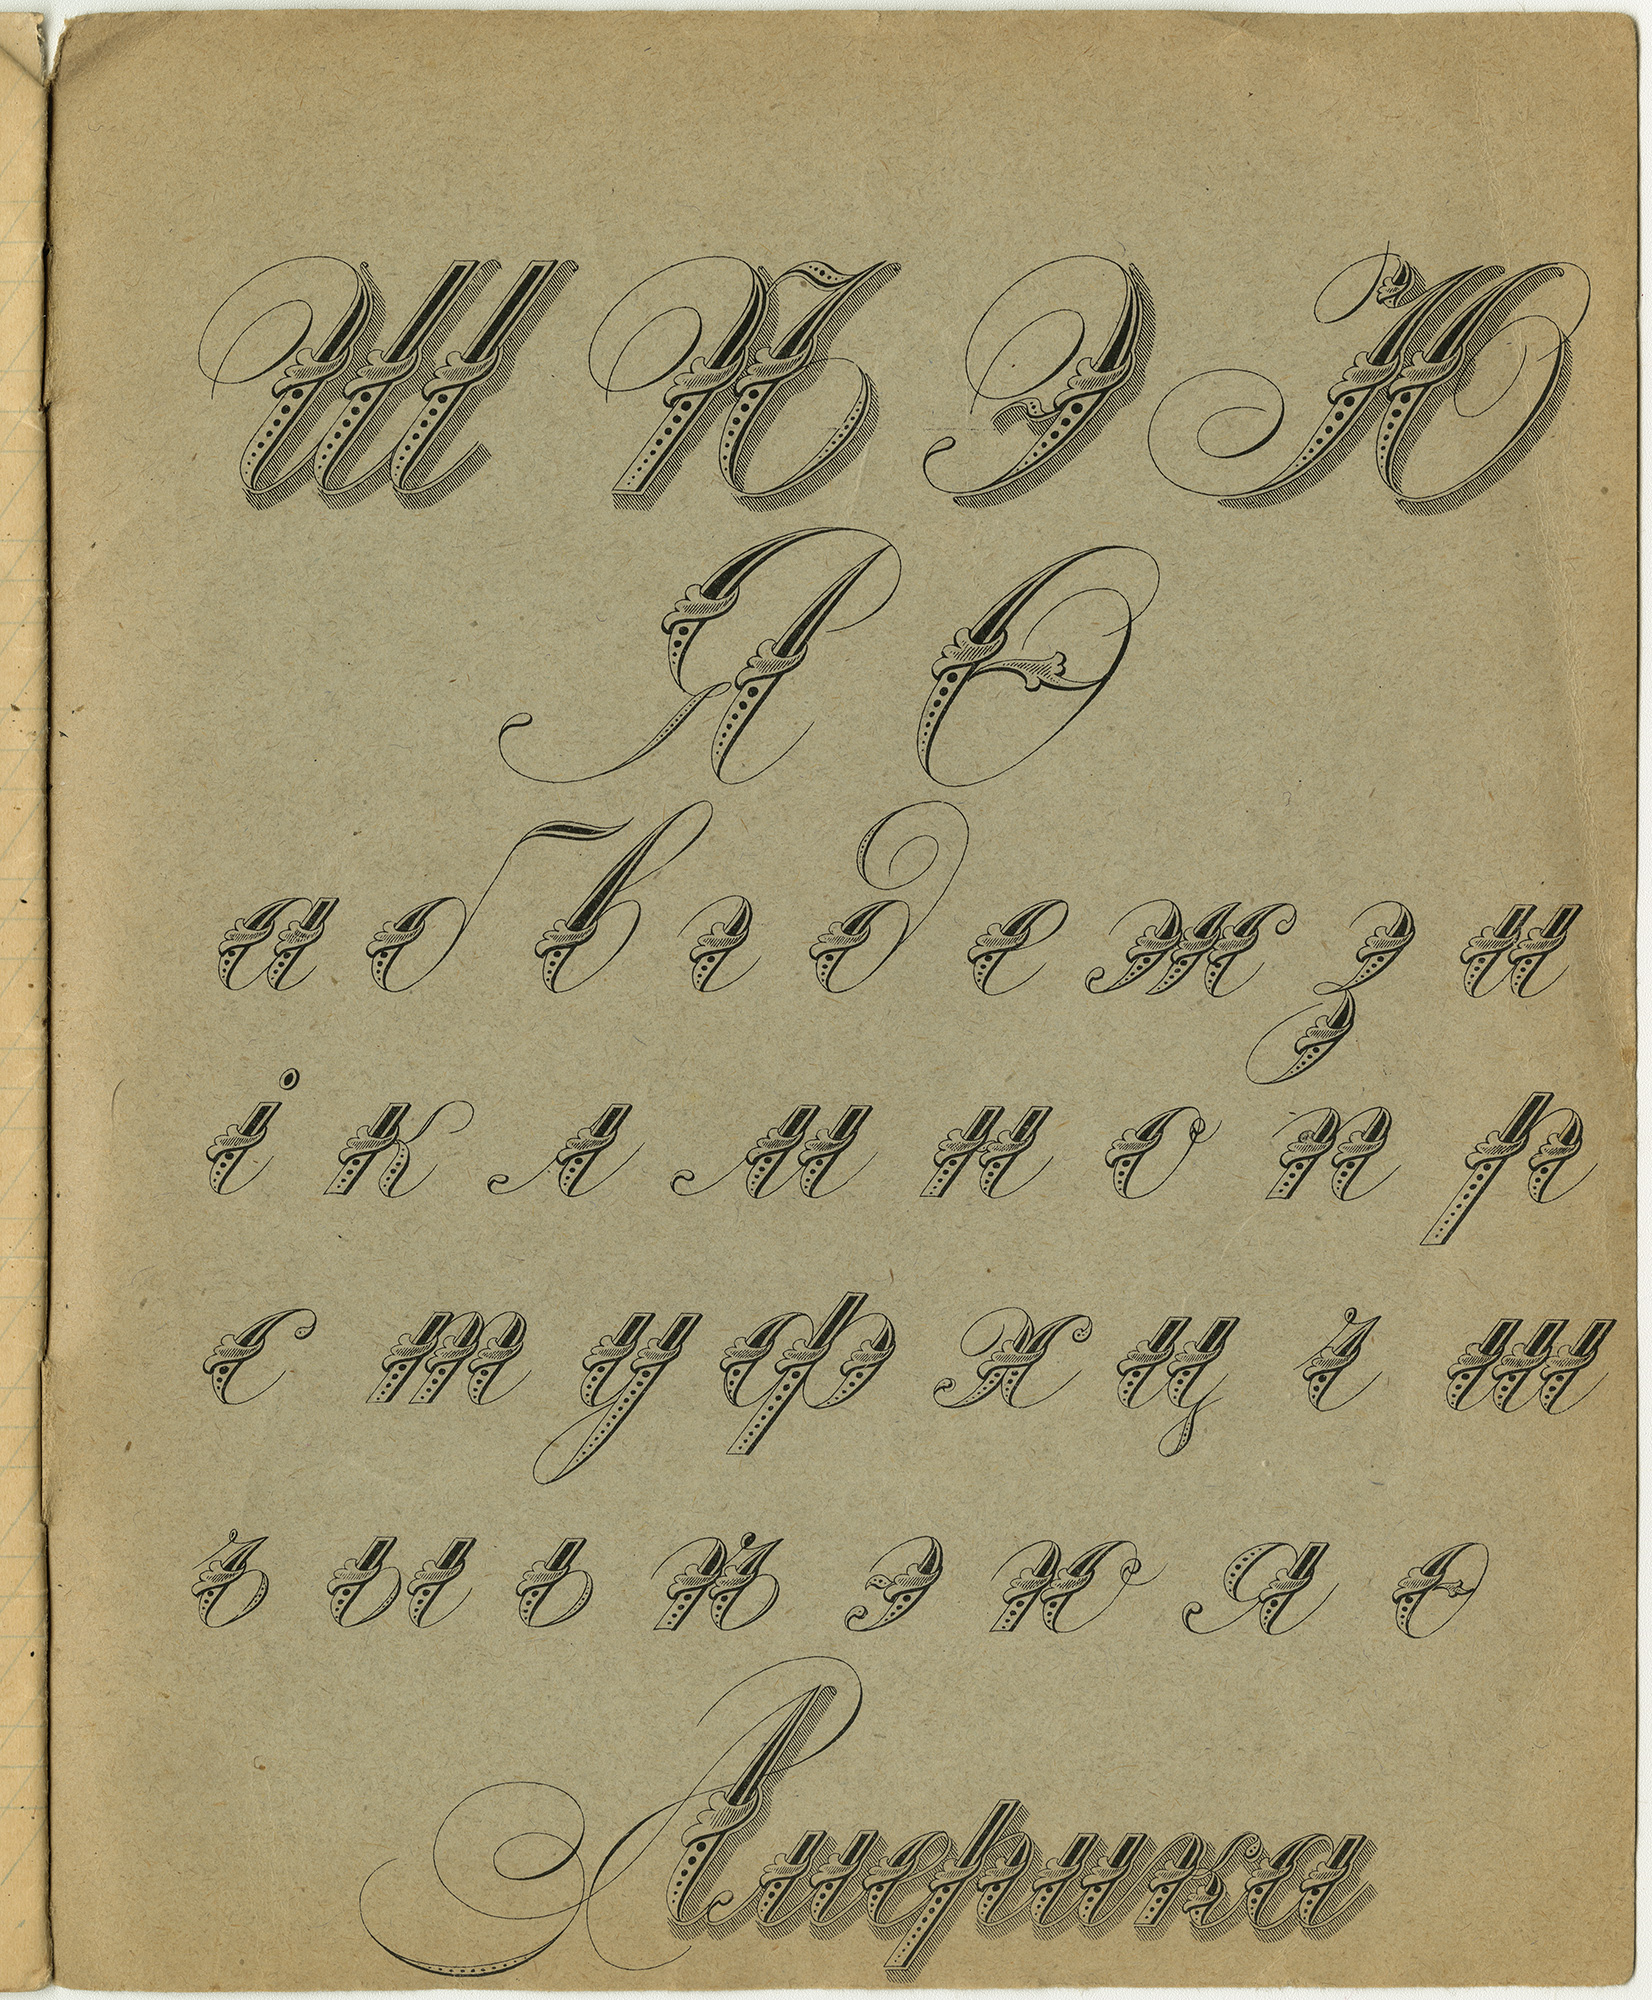 Ш Ѣ Э Ю
Я Ѳ
а б в г д е ж з и
і к л м н о п р
с т у ф х ц ч ш
ъ ы ь ѣ э ю я ѳ
Америка